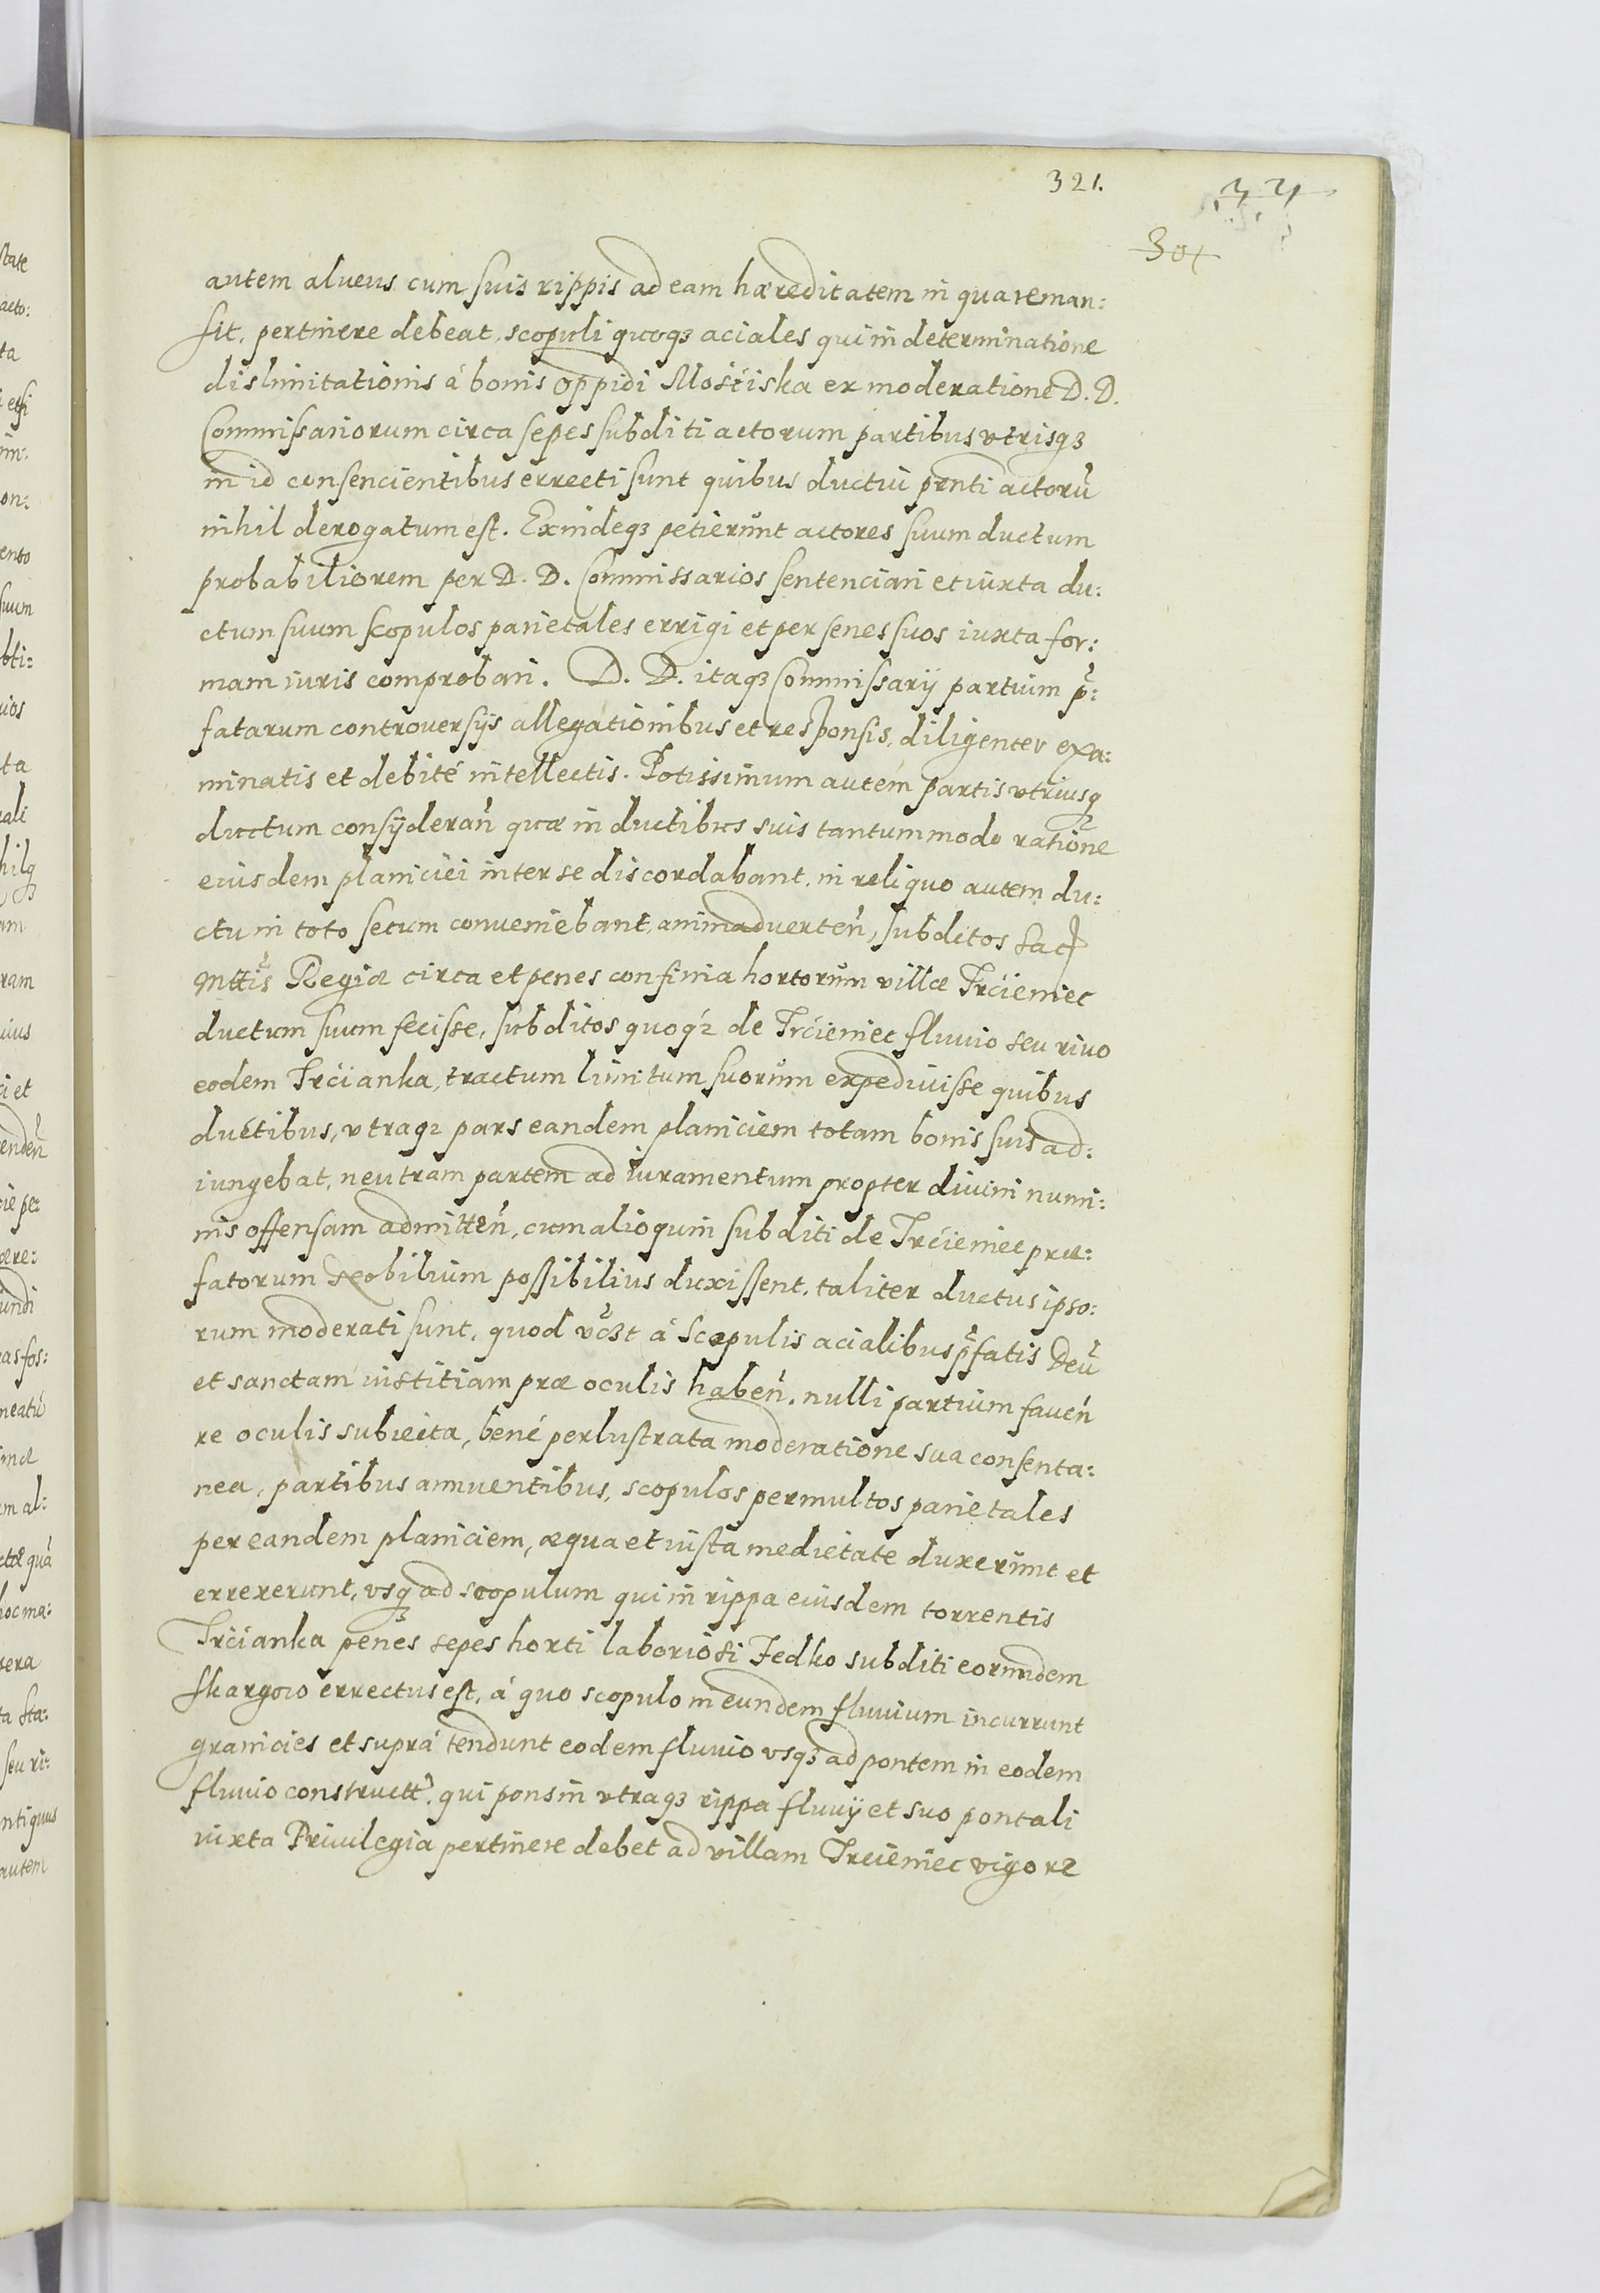 321.
301
autem alueus cum suis rippis ad eam hæreditatem in qua reman:
sit, pertinere debeat, scopuli quoqȝ aciales qui in determinatione
dislimitationis á bonis oppidi Mosćiska ex moderatione D. D.
Commissariorum circa sepes subditi actorum partibus vtrisqȝ
in id consencientibus errecti sunt quibus ductui pnti actorũ
nihil derogatum est. Exindeqȝ petierunt actores suum ductum
probabiliorem per D. D. Commissarios sentenciari et iuxta du:
ctum suum scopulos parietales errigi et per senes suos iuxta for:
mam iuris comprobari. D. D. itaqȝ Commissarij partium p̃:
fatarum controuersijs allegationibus et responsis, diligenter exa:
minatis et debité intellectis. Potissimum autem partis vtriusqȝ
ductum consyderan̉ quæ in ductibus suis tantummodo ratione
eiusdem planiciei inter se discordabant, in reliquo autem du:
ctu in toto secum conueniebant, animaduerten̉, subditos Sac
Mttis Regiæ circa et penes confinia hortorum villæ Trćieniec
ductum suum fecisse, subditos quoqȝ de Trćieniec fluuio seu riuo
eodem Trćianka, tractum limitum suorum expediuisse quibus
ductibus, vtraqȝ pars eandem planiciem totam bonis suis ad:
iungebat, neutram partem ad iuramentum propter diuini numi:
nis offensam admitten̉, cum alioquin subditi de Trćieniec præ:
fatorum Nobilium possibilius duxissent, taliter ductus ipso:
rum moderati sunt, quod vcȝt á scopulis acialibus p̃fatis Deũ
et sanctam iustitiam præ oculis haben̉, nulli partium fauen̉
re oculis subiecta, bené perlustrata moderatione sua consenta:
nea, partibus annuentibus, scopulos permultos parietales
per eandem planiciem, æqua et iusta medietate duxerunt et
errexerunt, vsqȝ ad scopulum qui in rippa eiusdem torrentis
Trćianka penes sepes horti laboriosi Fedko subditi eorundem
skargow errectus est, á quo scopulo in eundem fluuium incurrunt
granicies et suprá tendunt eodem fluuio vsqȝ ad pontem in eodem
fluuio constructt̉. qui pons in vtraqȝ rippa fluuij et suo pontali
iuxta Priuilegia pertinere debet ad villam Trćieniec vigore